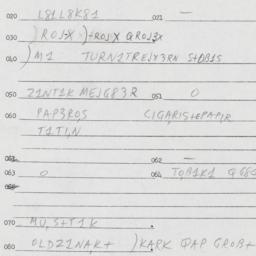 020 L81L8K81 021 —
030 )ROJ-X )+ROJX QROJ3X
040 )M1 TURN2TREJX3RN S+DB1S
050 Z1NT1K MEJG83R 051 0
060 PAP3ROS CIGARIS+EPAPIR
T1TI,N
061 062 —
063 0 064
070 MU,S+T1K
080 OLDZ1NAK+ )KARK QAP GROB+